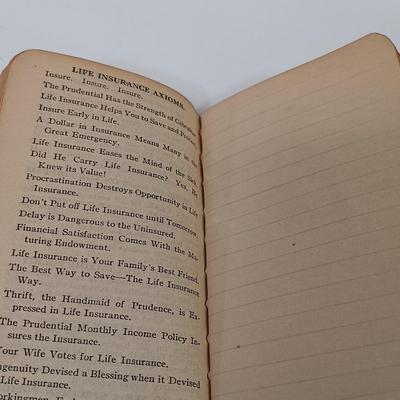 LIFE INSURANCE AXIOMS.
Insure. Insure. Insure.
The Prudential Has the Strength of Gibraltar.
Life Insurance Helps You to Save and
Insure Early in Life.
A Dollar in Insurance Means Many in the
Great Emergency.
Life Insurance Eases the Mind of the Sick.
Did He Carry Life Insurance? Yes, He
Knew its Value!
Procrastination Destroys Opportunity in Life
Insurance.
Don't Put off Life Insurance until Tomorrow.
Delay is Dangerous to the Uninsured.
Financial Satisfaction Comes With the Ma-
turing Endowment.
Life Insurance is Your Family's Best Friend.
The Best Way to Save—The Life Insurance
Way.
Thrift, the Handmaid of Prudence, is Ex-
pressed in Life Insurance.
The Prudential Monthly Income Policy In-
sures the Insurance.
Your Wife Votes for Life Insurance.
ngenuity Devised a Blessing when it Devised
Life Insurance.